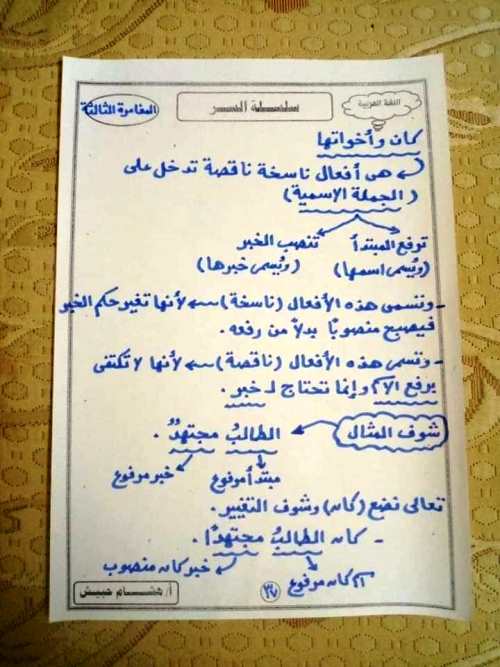 اللغة العربية
سلسلة السر
المغامرة الثالثة
كان وأخواتها
هى أفعال ناسخة ناقصة تدخل على
(الجملة الإسمية)
ترفع المبتدأ تنصب الخبر
(ويُسمى اسمها) (ويُسمى خبرها)
- وتتسمى هذه الأفعال (ناسخة) لأنها تغير حكم الخبر
فيصبح منصوبًا بدلاً من رفعه.
- وتسمى هذه الأفعال (ناقصة) لأنها لا تكتفى
برفع الاسم وإنما تحتاج لـ خبر.
شوف المثال الطالبُ مجتهدٌ.
مبتدأ مرفوع خبر مرفوع
تعالى نضع (كان) وشوف التغيير.
- كان الطالبُ مجتهدًا.
اسم كان مرفوع خبر كان منصوب
٣٧
أ/ هشام حبيش